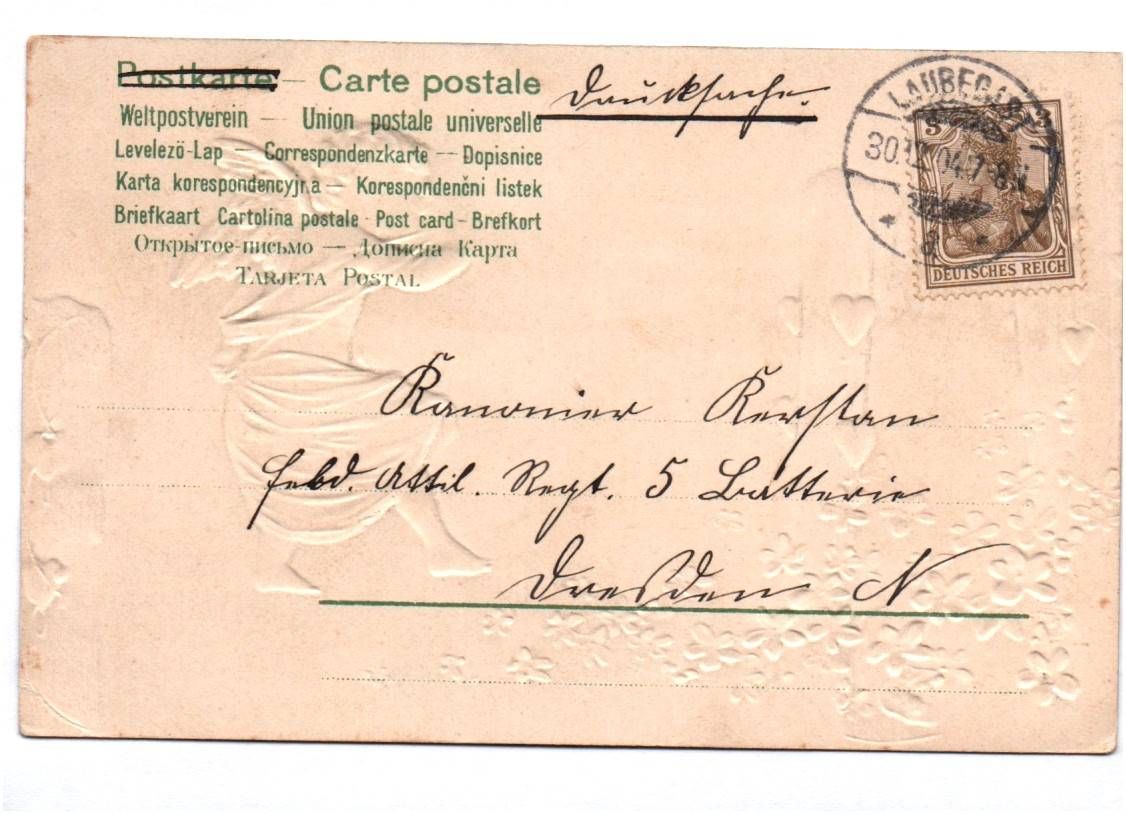 Postkarte — Carte postale
Drucksache.
Weltpostverein — Union postale universelle
Levelezö-Lap — Correspondenzkarte — Dopisnice
Karta korespondencyjna — Korespondenční listek
Briefkaart Cartolina postale - Post card - Brefkort
Открытое-письмо — Дописна Карта
TARJETA POSTAL
LAUBEGAST
30.12.04. 7-8N.
a
3 3
DEUTSCHES REICH
Kanonier Kerstan
Feld. Attil. Regt. 5 Batterie
Dresden N